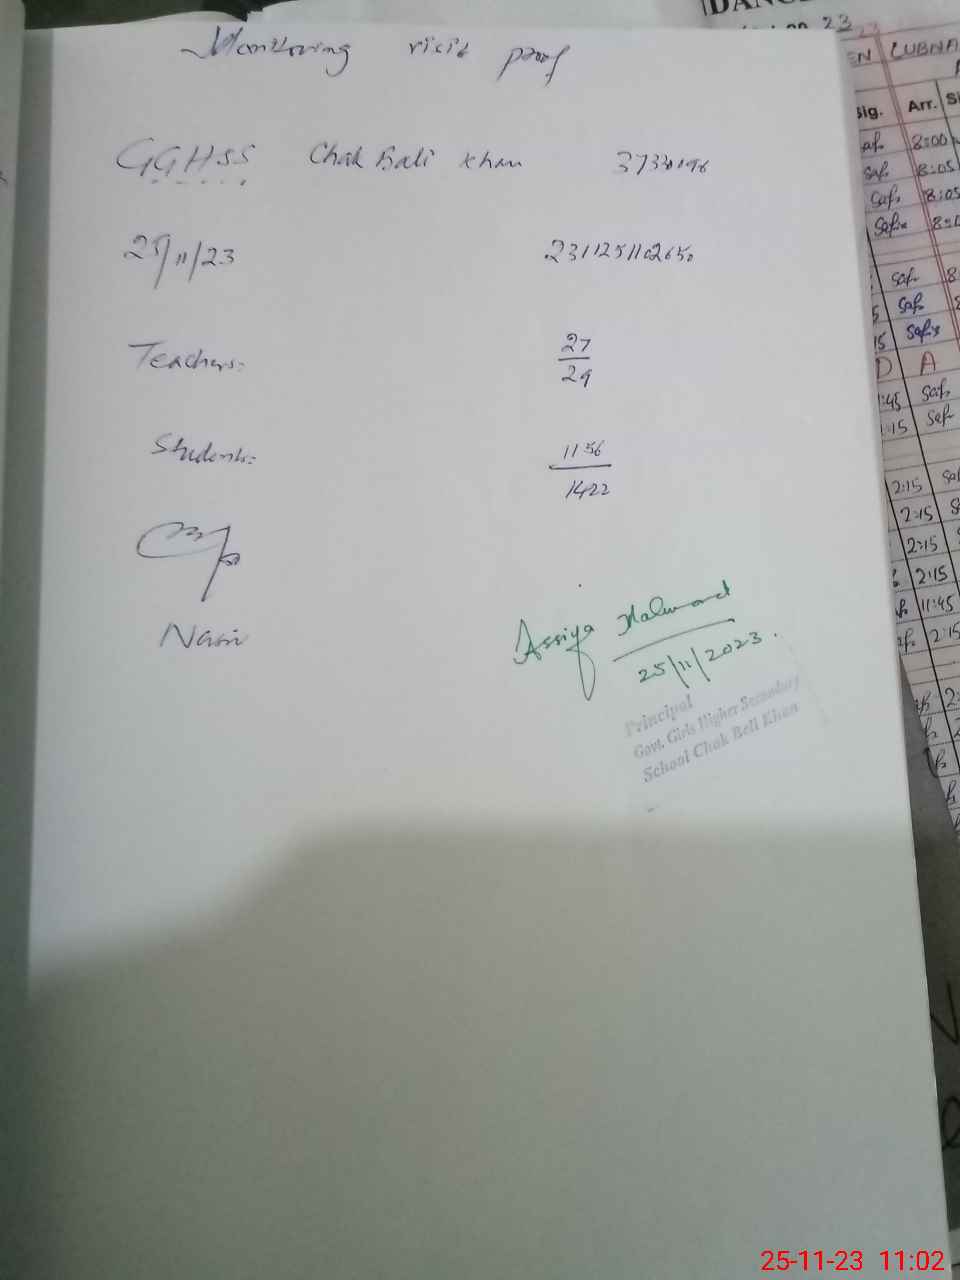 Monitoring visit proof
GGHSS Chak Bali Khan 37330196
25/11/23 2311251102650
Teachers: 27
29
Students: 1156
1422
Nasir
Assiya Mahmood
25/11/2023.
Principal
Govt. Girls Higher Secondary
School Chak Beli Khan
25-11-23 11:02
23
LUBNA
Sig. Arr.
8:00
Safs 8:05
Safs 8:05
Safix
Safs
Safs
15 Safix
D A
1:45 Safs
1:15 Saf
2:15
2:15
2:15
2:15
11:45
2:15